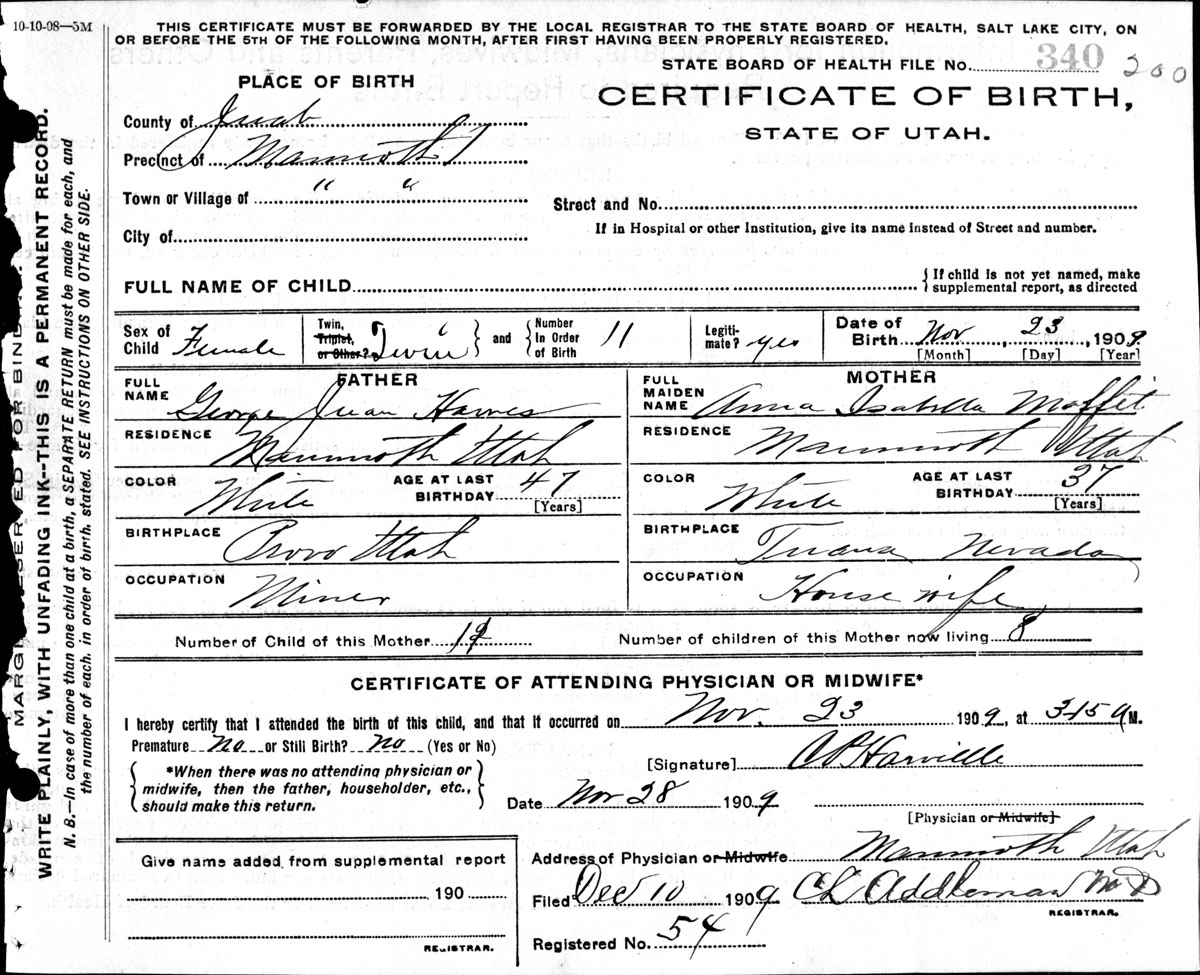 10-10-08—5M
THIS CERTIFICATE MUST BE FORWARDED BY THE LOCAL REGISTRAR TO THE STATE BOARD OF HEALTH, SALT LAKE CITY, ON
OR BEFORE THE 5TH OF THE FOLLOWING MONTH, AFTER FIRST HAVING BEEN PROPERLY REGISTERED.
STATE BOARD OF HEALTH FILE No. 340 200
PLACE OF BIRTH
CERTIFICATE OF BIRTH,
STATE OF UTAH.
County of Juab
Precinct of Mammoth
Town or Village of " "
Street and No.
City of
If in Hospital or other Institution, give its name instead of Street and number.
FULL NAME OF CHILD
{If child is not yet named, make
supplemental report, as directed
Sex of Child Female
Twin, Triplet, or Other? Twin } and { Number In Order of Birth 11
Legitimate? yes
Date of Birth Nov, 23 1909
[Month] [Day] [Year]
FATHER
FULL NAME George Juan Hawes
RESIDENCE Mammoth Utah
COLOR White AGE AT LAST BIRTHDAY 47
[Years]
BIRTHPLACE Provo Utah
OCCUPATION Miner
MOTHER
FULL MAIDEN NAME Anna Isabella Moffit
RESIDENCE Mammoth Utah
COLOR White AGE AT LAST BIRTHDAY 37
[Years]
BIRTHPLACE Nevada
OCCUPATION House wife
Number of Child of this Mother
Number of children of this Mother now living 8
CERTIFICATE OF ATTENDING PHYSICIAN OR MIDWIFE*
I hereby certify that I attended the birth of this child, and that it occurred on Nov. 23 1909, at 315 a M.
Premature no or Still Birth? no (Yes or No)
{*When there was no attending physician or
midwife, then the father, householder, etc.,
should make this return.}
[Signature] Harville
Date Nov 28 1909
[Physician or Midwife]
Give name added from supplemental report
190
REGISTRAR.
Address of Physician or Midwife Mammoth Utah
Filed Dec 10 1909 CL Addleman MD
REGISTRAR.
Registered No. 54
MARGIN RESERVED FOR BINDING.
WRITE PLAINLY, WITH UNFADING INK--THIS IS A PERMANENT RECORD.
N. B.—In case of more than one child at a birth, a SEPARATE RETURN must be made for each, and
the number of each, in order of birth, stated. SEE INSTRUCTIONS ON OTHER SIDE.